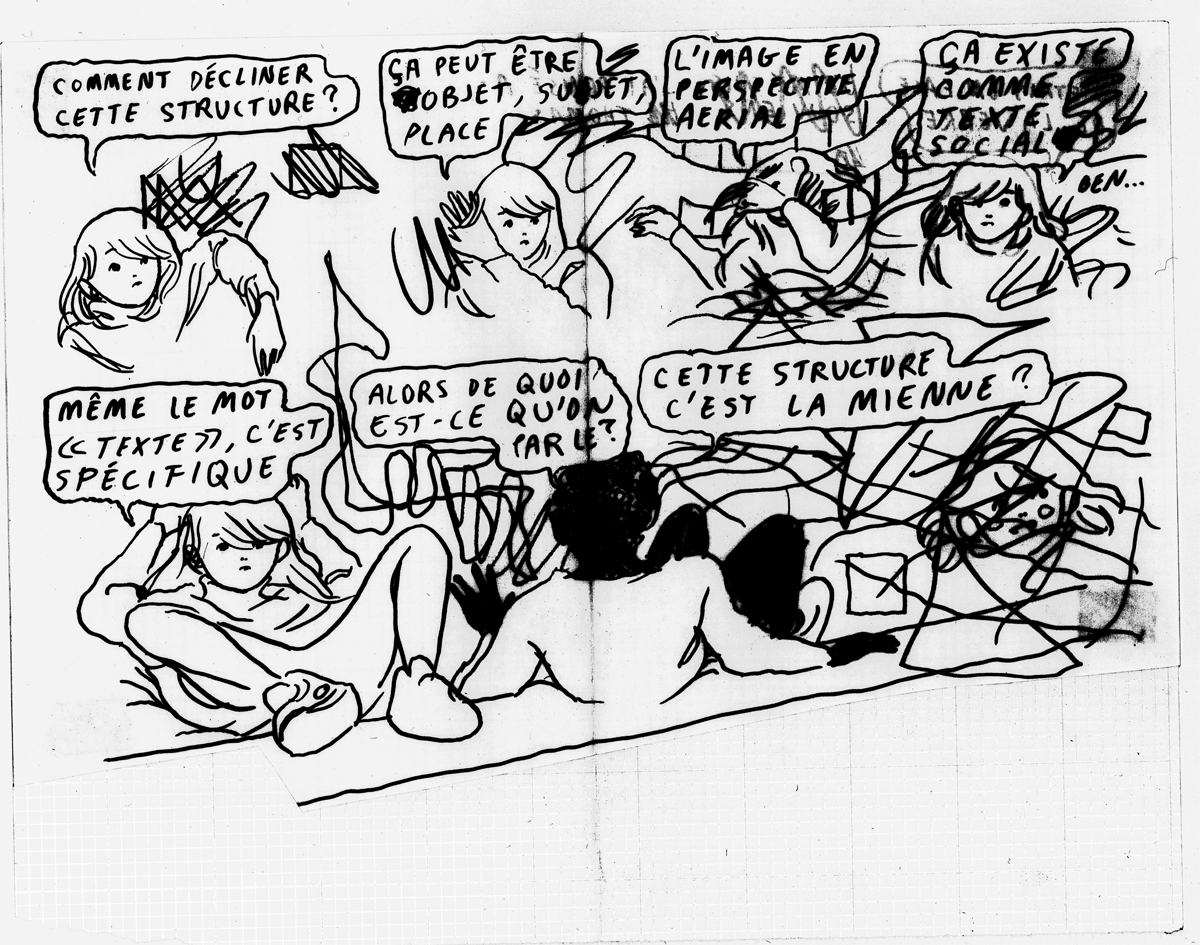 COMMENT DÉCLINER
CETTE STRUCTURE?
ÇA PEUT ÊTRE
OBJET, SUJET,
PLACE
L'IMAGE EN
PERSPECTIVE
AERIAL
ÇA EXISTE
COMME
TEXTE
SOCIAL
BEN...
MÊME LE MOT
«TEXTE», C'EST
SPÉCIFIQUE
ALORS DE QUOI
EST-CE QU'ON
PARLE?
CETTE STRUCTURE
C'EST LA MIENNE?